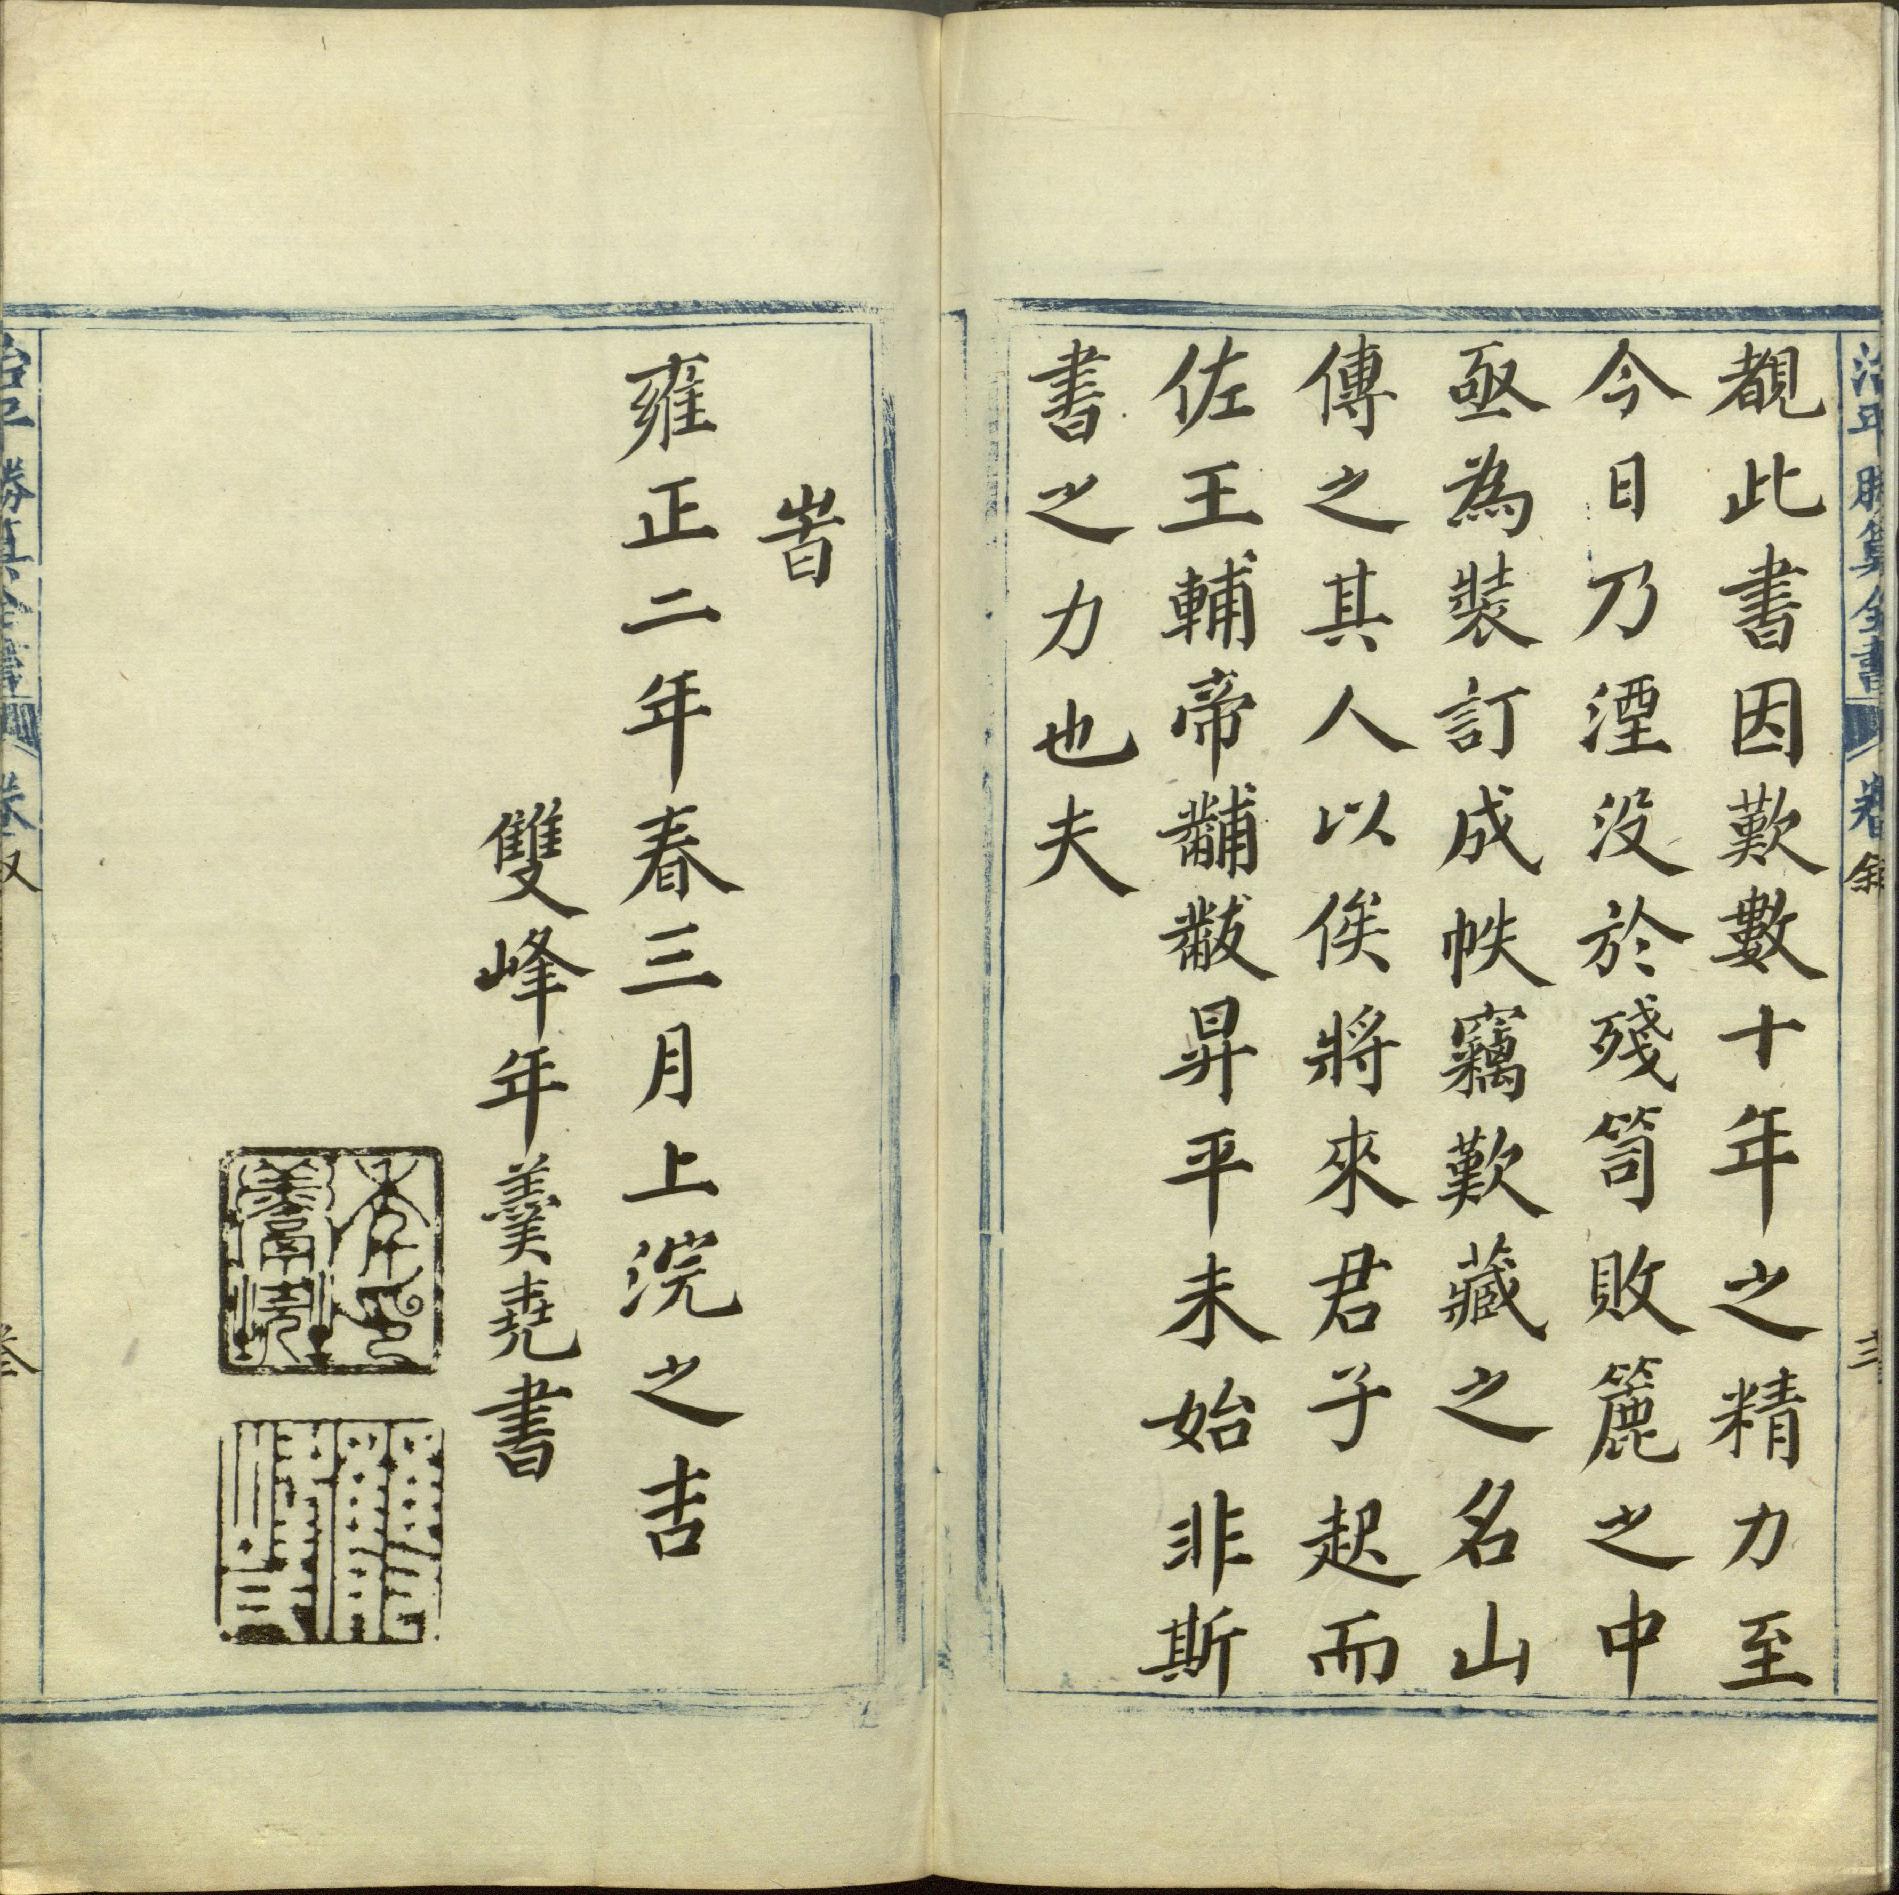 治平勝算全書 卷 敘 三
覩此書因歎數十年之精力至
今日乃湮没於殘笥敗簏之中
亟為裝訂成帙竊歎藏之名山
傳之其人以俟將來君子起而
佐王輔帝黼黻昇平未始非斯
書之力也夫
旹
雍正二年春三月上浣之吉
雙峰年羹堯書
年羹堯